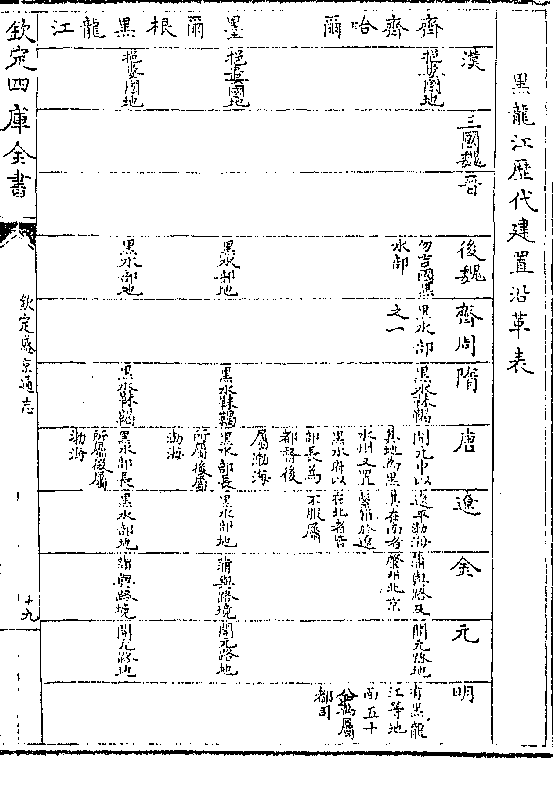 黑龍江歷代建置沿革表
漢
三國魏
晉
後魏
齊周
隋
唐
遼
金
元
明
齊齊哈爾
挹婁國地
勿吉國黑
水部
黑水部
之一
黑水靺鞨
開元中以
其地為黑
水州又置
黑水府以
部長為
都督後
屬渤海
遼平渤海
其在南者
繫籍於遼
在北者皆
不服屬
蒲與路及
北京
開元路地
有黑龍
江等地
五十
屬
都司
墨爾根
挹婁國地
黑水部地
黑水靺鞨
黑水部長
所屬後屬
渤海
黑水部地
蒲與路境
開元路地
黑龍江
挹婁國地
黑水部地
黑水靺鞨
黑水部長
所屬後屬
渤海
黑水部地
蒲與路境
開元路地
欽定四庫全書
欽定盛京通志
十九